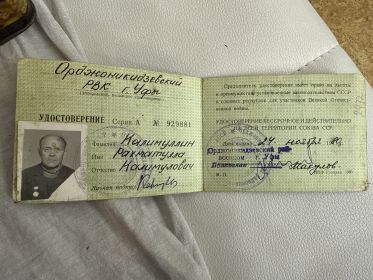 Орджоникидзевский
РВК г. Уфы
УДОСТОВЕРЕНИЕ Серия А № 929881
Фамилия Калимуллин
Имя Рахматулла
Отчество Калимулович
Личная подпись
Предъявитель удостоверения имеет право на льготы
и преимущества, установленные законодательством СССР
и союзных республик для участников Великой Отечест-
венной войны.
УДОСТОВЕРЕНИЕ БЕССРОЧНОЕ И ДЕЙСТВИТЕЛЬНО
НА ВСЕЙ ТЕРРИТОРИИ СОЮЗА ССР.
24 ноября 1980
Орджоникидзевский рай-
военком г. Уфы